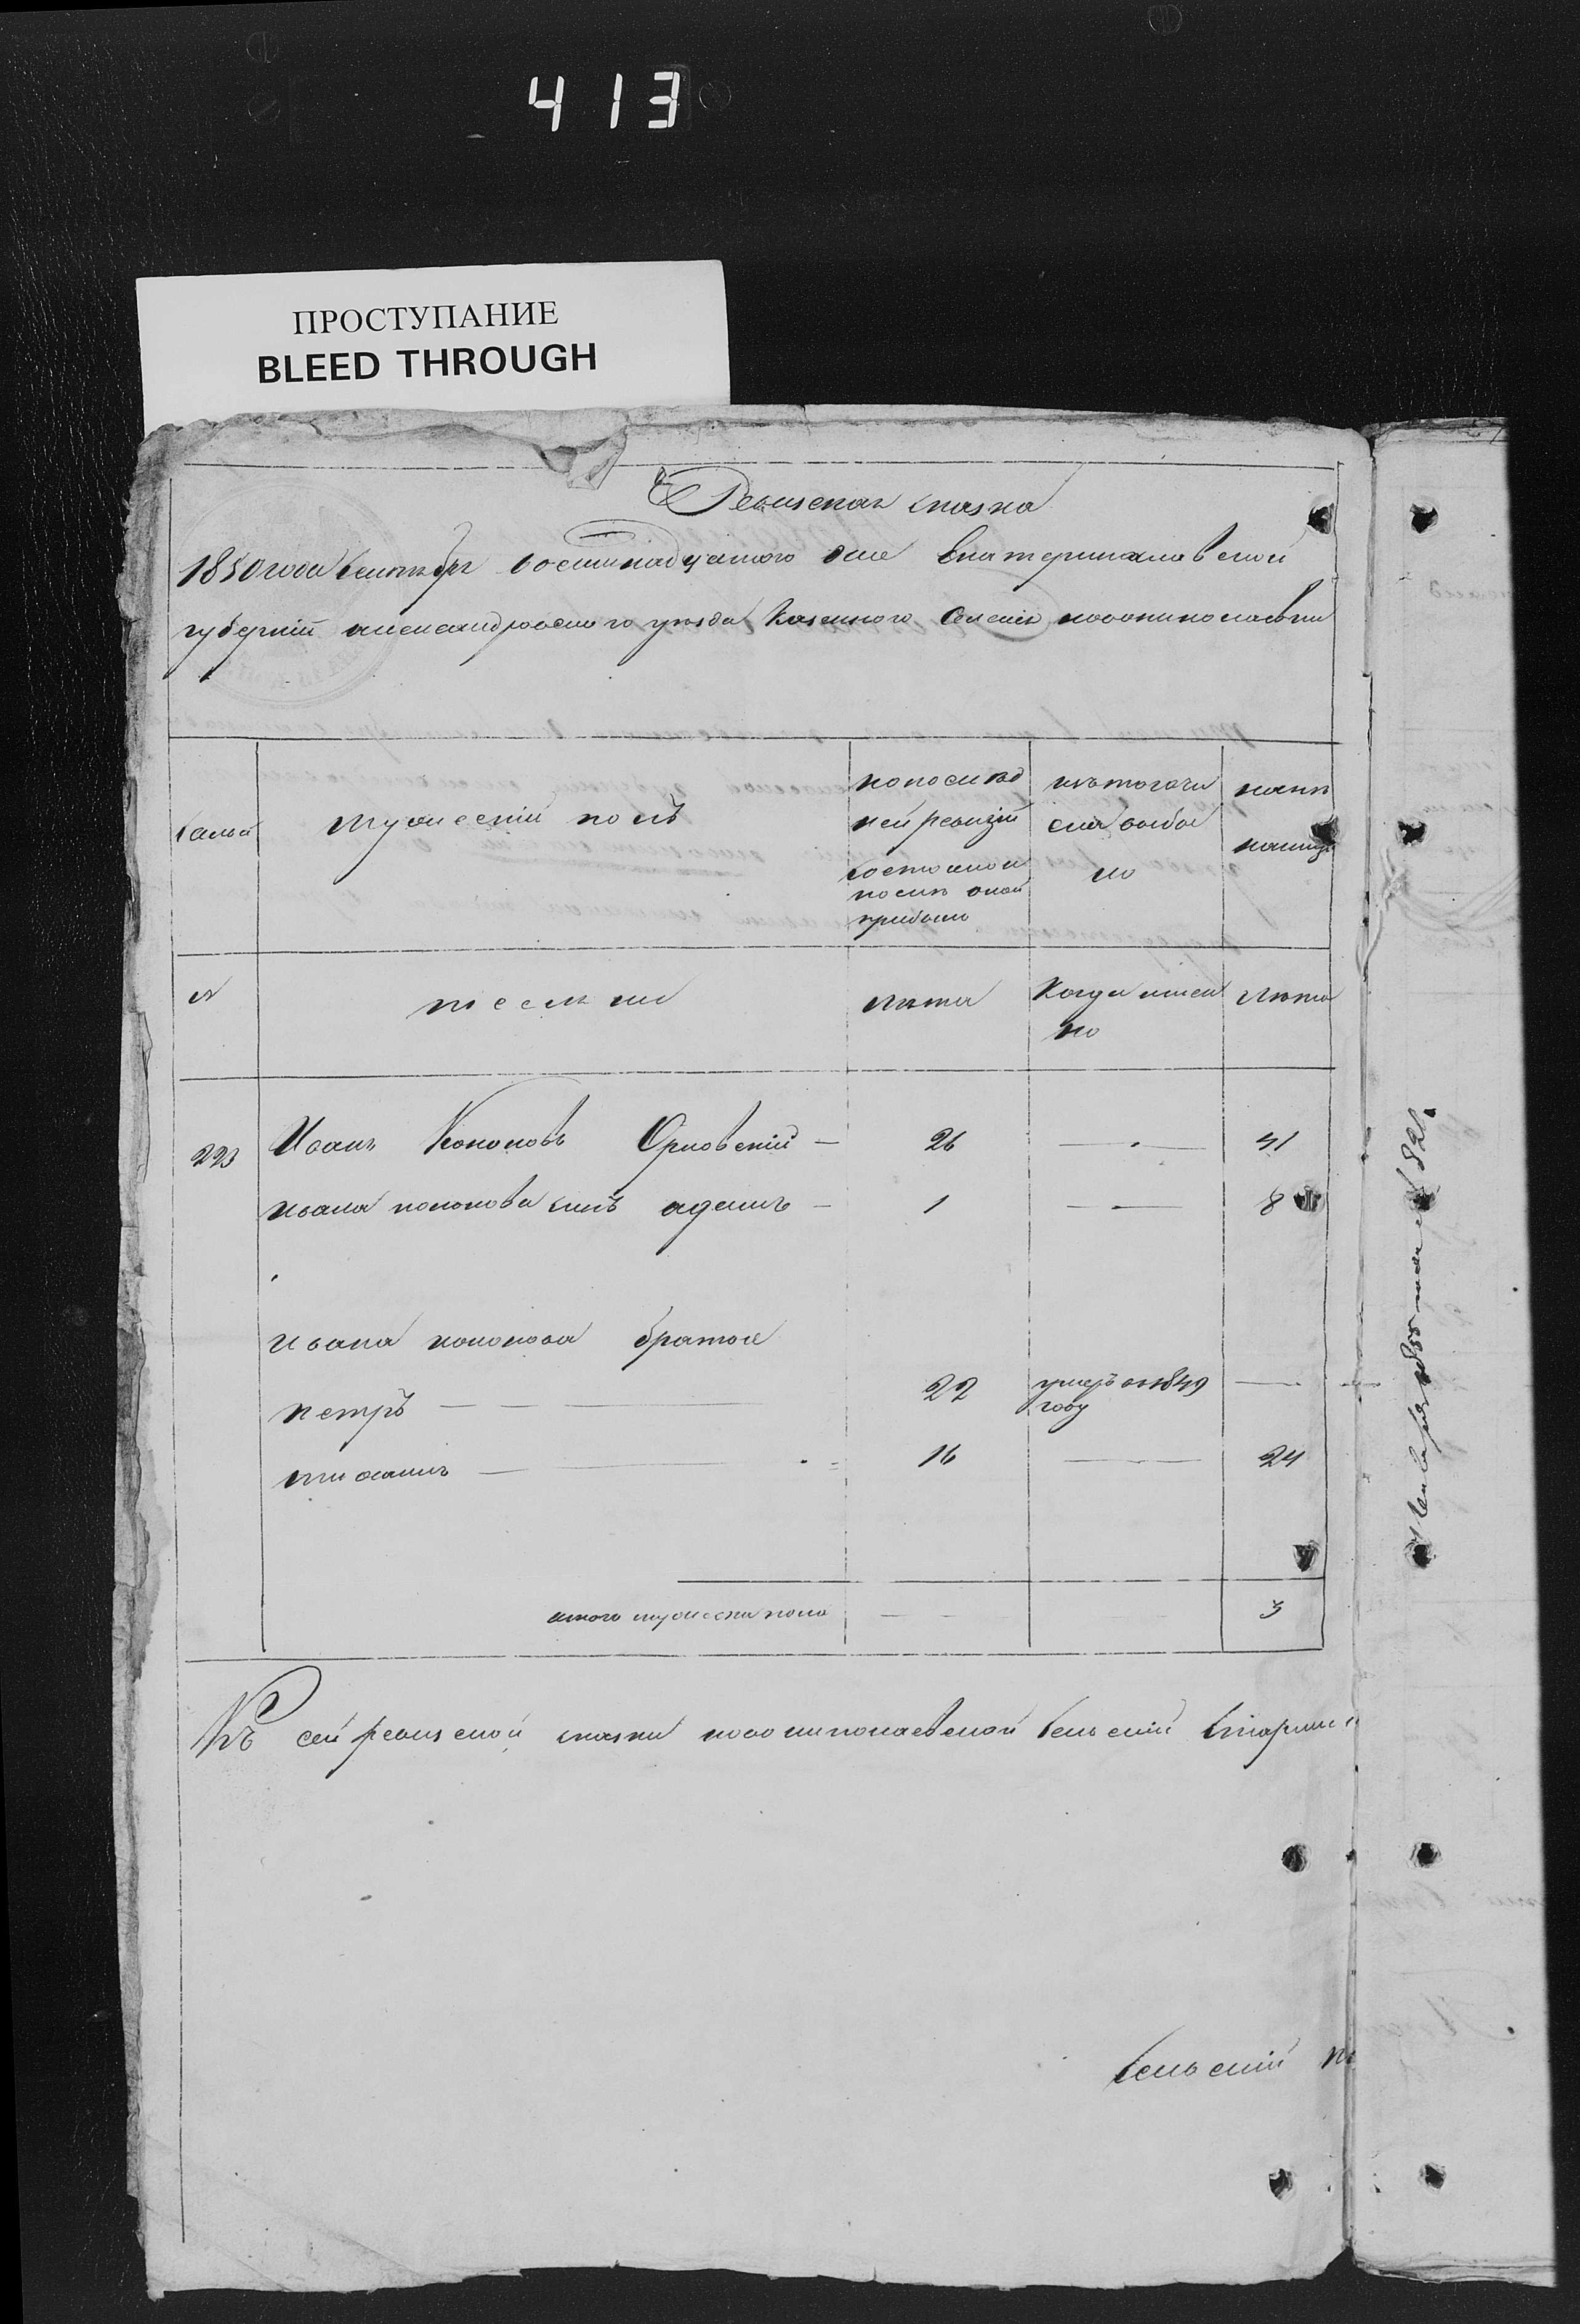 413
ПРОСТУПАНИЕ
BLEED THROUGH
Ревизская сказка
1850 года Сентября восемнадцатого дня Екатеринославской
губерній александровского уезда Казенного Селенія новониколаевки
мужескій полъ
по послед
ней ревизій
состояло и
после оной
прибыло
изъ того чи
сла выбы
ло
ныне
налицо
№
лета
Когда имен
но
лета
223 Иванъ Кононовъ Орловскій — 26 — 41
Ивана кононова сынъ адамъ — 1 — 8
Ивана кононова братья
петръ — 22 умеръ въ 1849 году —
16 — 24
итого мужеска пола — — 3
Къ сей ревизской сказки новониколаевской сельскій Старшина
Сельскій